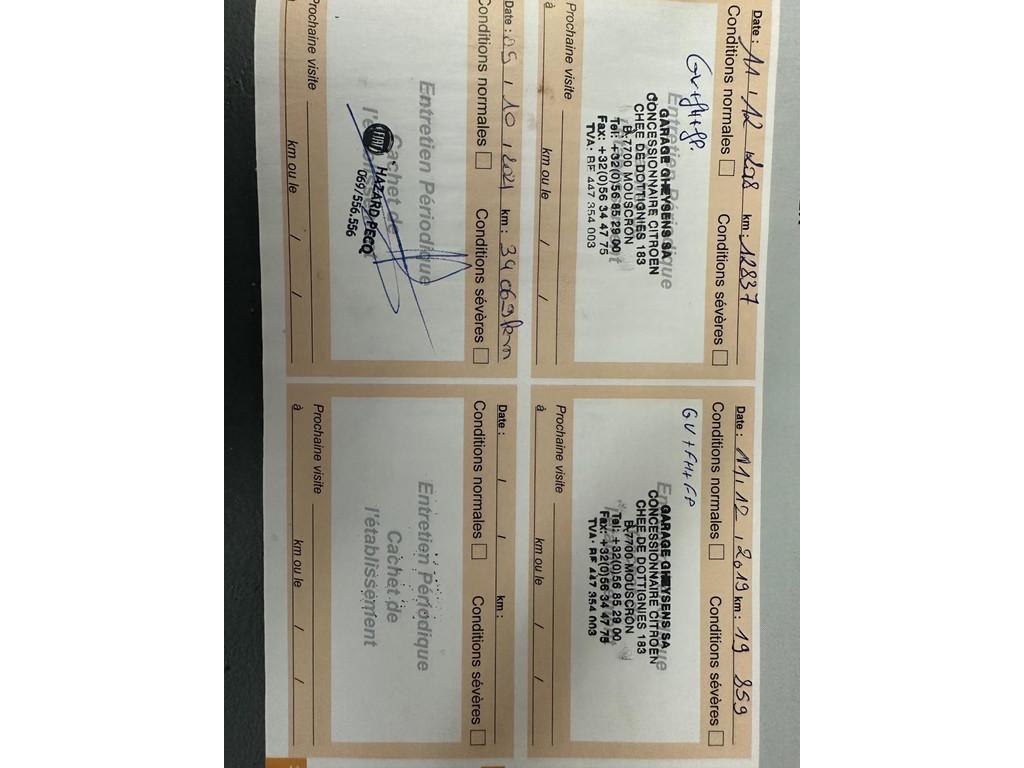 Date : 11 / 12 / 2018 km : 12837
Conditions normales Conditions sévères
GV+FH+FP.
Entretien Périodique
GARAGE GHEYSENS SA
CONCESSIONNAIRE CITROEN
CHEE DE DOTTIGNIES 183
B.7700 MOUSCRON
Tel: +32(0)56 85 29 00
Fax: +32(0)56 34 47 75
TVA: BE 447 354 003
Prochaine visite
à km ou le / /
Date : 11 / 12 / 2019 km : 19 859
Conditions normales Conditions sévères
GV+FH+FP
GARAGE GHEYSENS SA
CONCESSIONNAIRE CITROEN
CHEE DE DOTTIGNIES 183
B.7700 MOUSCRON
Tel: +32(0)56 85 29 00
Fax: +32(0)56 34 47 75
TVA: BE 447 354 003
Prochaine visite
à km ou le / /
Date : 05 / 10 / 2021 km : 34069km
Conditions normales Conditions sévères
Entretien Périodique
Cachet de
FIAT HAZARD PECQ
069/556.556
Prochaine visite
à km ou le / /
Date : / / km :
Conditions normales Conditions sévères
Entretien Périodique
Cachet de
l'établissement
Prochaine visite
à km ou le / /